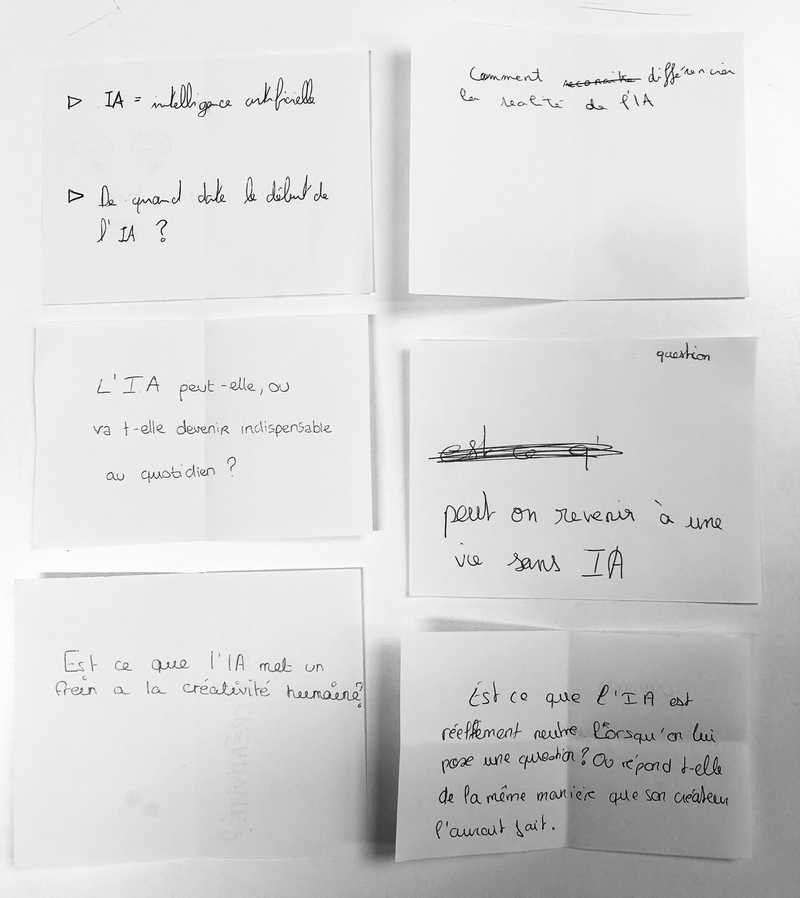 ▷ IA = intelligence artificielle
▷ De quand date le début de
l'IA ?
Comment reconaitre différencier
la réalité de l'IA
L'IA peut-elle, ou
va t-elle devenir indispensable
au quotidien ?
question
est ce q'
peut on revenir à une
vie sans IA
Est ce que l'IA met un
frein a la créativité humaine?
Est ce que l'IA est
réellement neutre lorsqu'on lui
pose une question? Ou répond t-elle
de la même manière que son créateur
l'aurait fait.